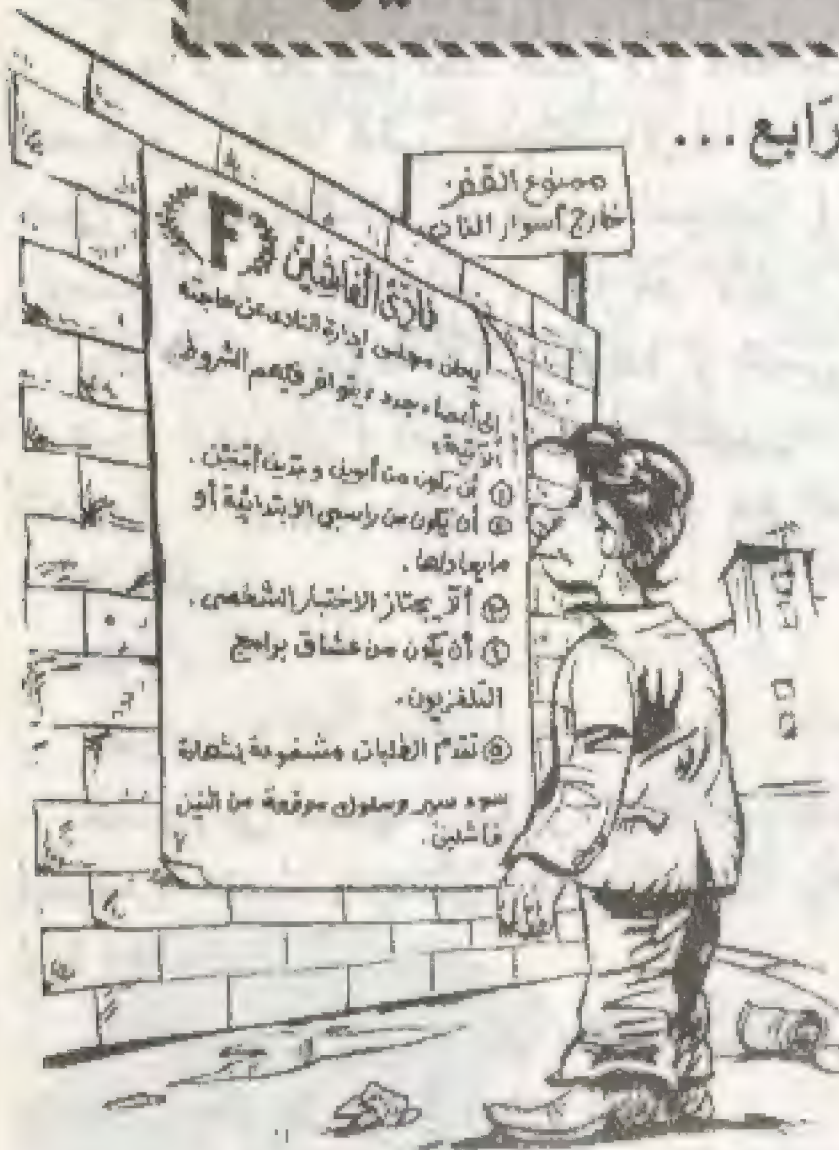 ممنوع القفز
خارج أسوار النادى
F
نادى الفاشلين
يعلن مجلس إدارة النادى عن حاجته
إلى أعضاء جدد، يتوافر فيهم الشروط
الآتية:
① أن يكون من أبوين وجدين أميين.
② أن يكون من راسبى الابتدائية أو
مايعادلها.
③ ألا يجتاز الاختبار الشخصى.
④ أن يكون من عشاق برامج
التلفزيون.
⑤ تقدم الطلبات مشفوعة بشهادة
سوء سير وسلوك موقعة من اثنين
فاشلين.